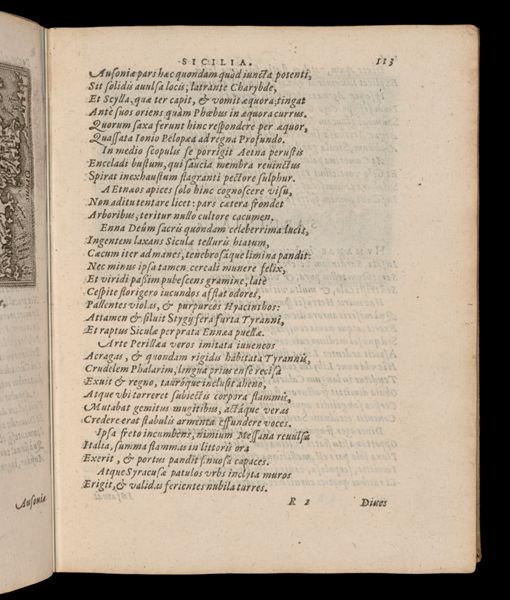 SICILIA. 113
Ausoniæ pars hæc quondam quòd iuncta potenti,
Sit solidis auulsa locis; latrante Charybde,
Et Scylla, quæ ter capit, & vomit æquora; tingat
Ante suos oriens quàm Phœbus in æquora currus.
Quorum saxa ferunt hinc respondere per æquor,
Quassata Ionio Pelopæa ad regna Profundo.
In medio scopulis se porrigit Aetna perustis
Enceladi bustum, qui saucia membra reuinctus
Spirat inexhaustum flagranti pectore sulphur.
A Etnæos apices solo hinc cognoscere visu,
Non aditu tentare licet: pars cætera frondet
Arboribus; teritur nullo cultore cacumen.
Enna Deûm sacris quondam celeberrima lucis,
Ingentem laxans Siculæ telluris hiatum,
Cæcum iter ad manes, tenebrosáque limina pandit:
Nec minus ipsa tamen cereali munere felix,
Et viridi passim pubescens gramine, latè
Cespite florigero iucundos afflat odores,
Pallentes violas, & purpurei Hyacinthos:
Attamen & siluit Stygij fera furta Tyranni,
Et raptus Siculæ per prata Ennæa puellæ.
Arte Perillæa veros imitata iuuencos
Acragas, & quondam rigidis habitata Tyrannis,
Crudelem Phalarim; lingua prius ense recisa
Exuit & regno, tauróque inclusit aheno,
Atque vbi torreret subiectis corpora flammis,
Mutabat gemitus mugitibus, actáque veras
Credere erat stabulis armenta effundere voces.
Ipsa freto incumbens, nimium Messana reuulsa
Italia, summa flammas in littoris ora
Exerit, & portus pandit sinuosa capaces.
Atque Syracusæ patulos vrbs inclyta muros
Erigit, & validas ferientes nubila turres.
R 2 Diues
Ausoniæ